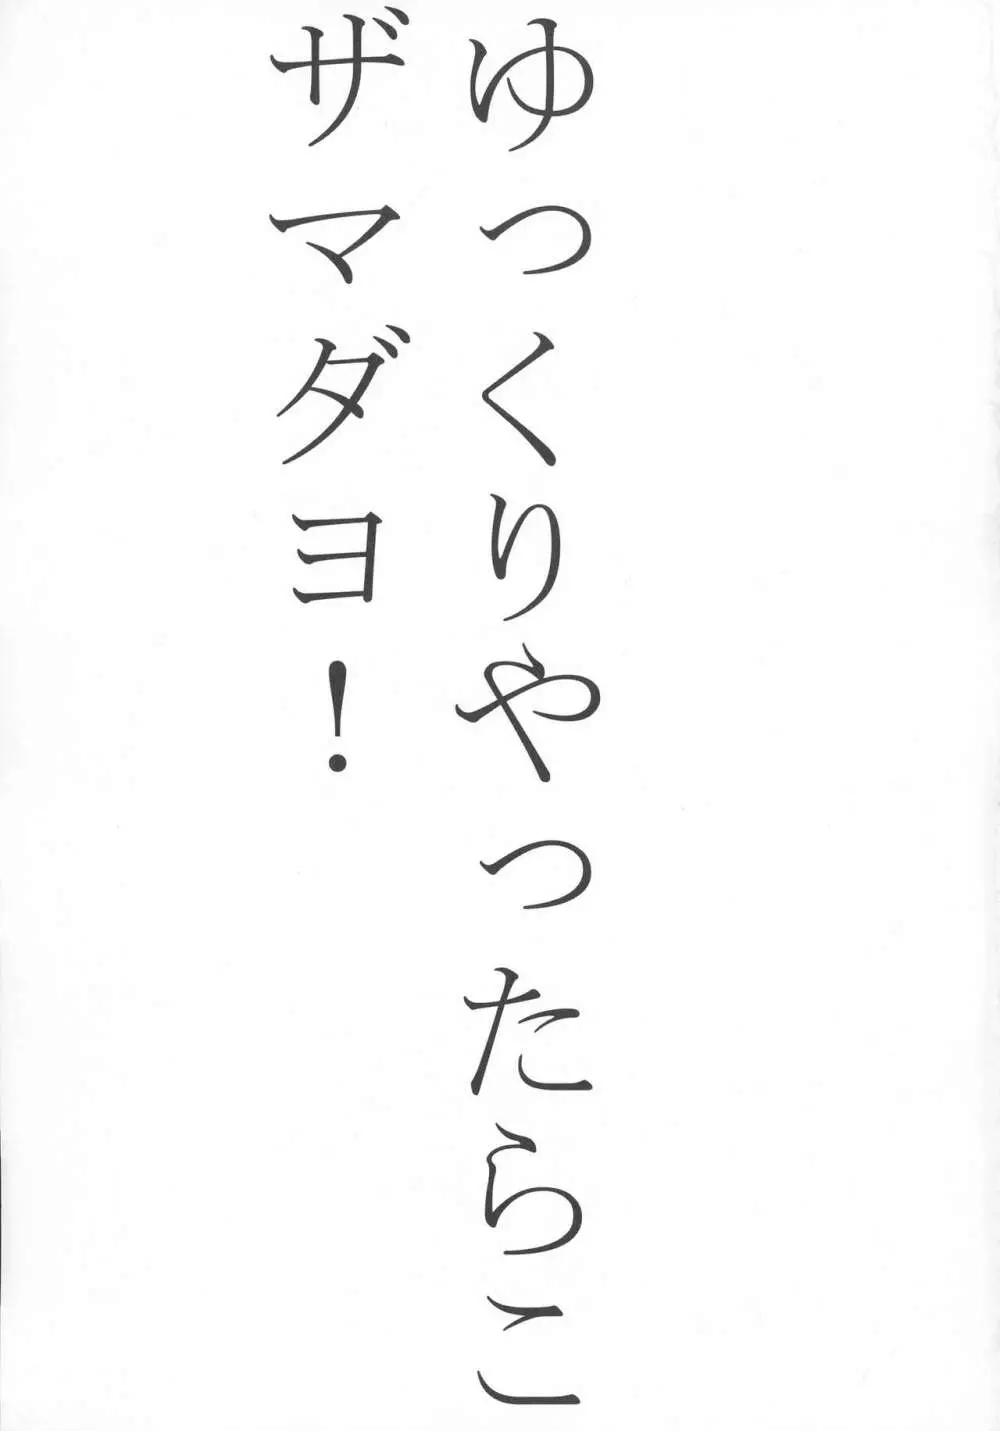 ゆっくりやったらこ
ザマダヨ！